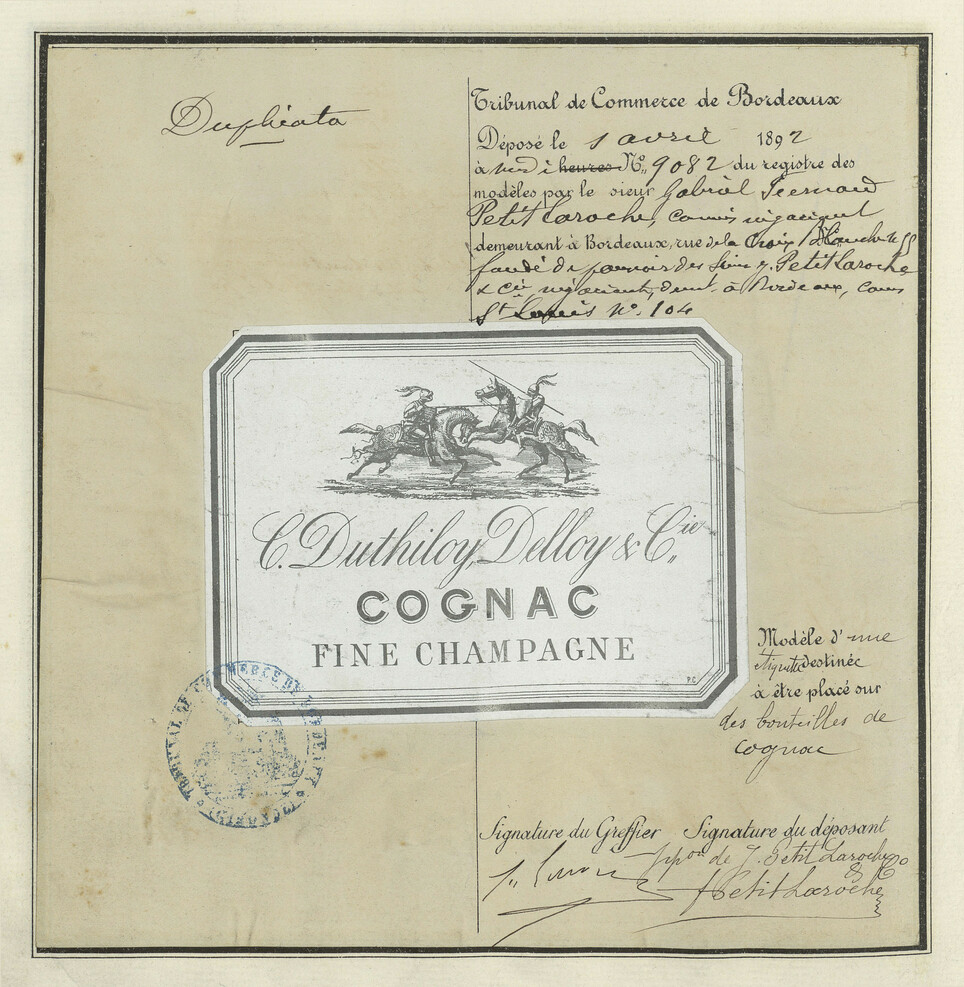 Duplicata
Tribunal de Commerce de Bordeaux
Déposé le 1 avril 1892
à midi heures N° 9082 du registre des
modèles par le sieur Gabriel Fernand
Petit Laroche, commis négociant
demeurant à Bordeaux, rue de la Croix Blanche N° 55
fondé de pouvoir des sieurs J. Petit Laroche
& Cie négociants, demt à Bordeaux, cours
St Louis N° 104
C. Duthiloy, Delloy & Cie
COGNAC
FINE CHAMPAGNE
P.C.
TRIBUNAL DE COMMERCE DE BORDEAUX
Modèle d'une
étiquette destinée
à être placé sur
des bouteilles de
cognac
Signature du Greffier Signature du déposant
ppon de J. Petit Laroche & Co
Petit Laroche